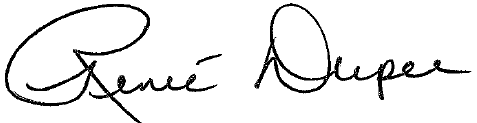 Renée Dupee